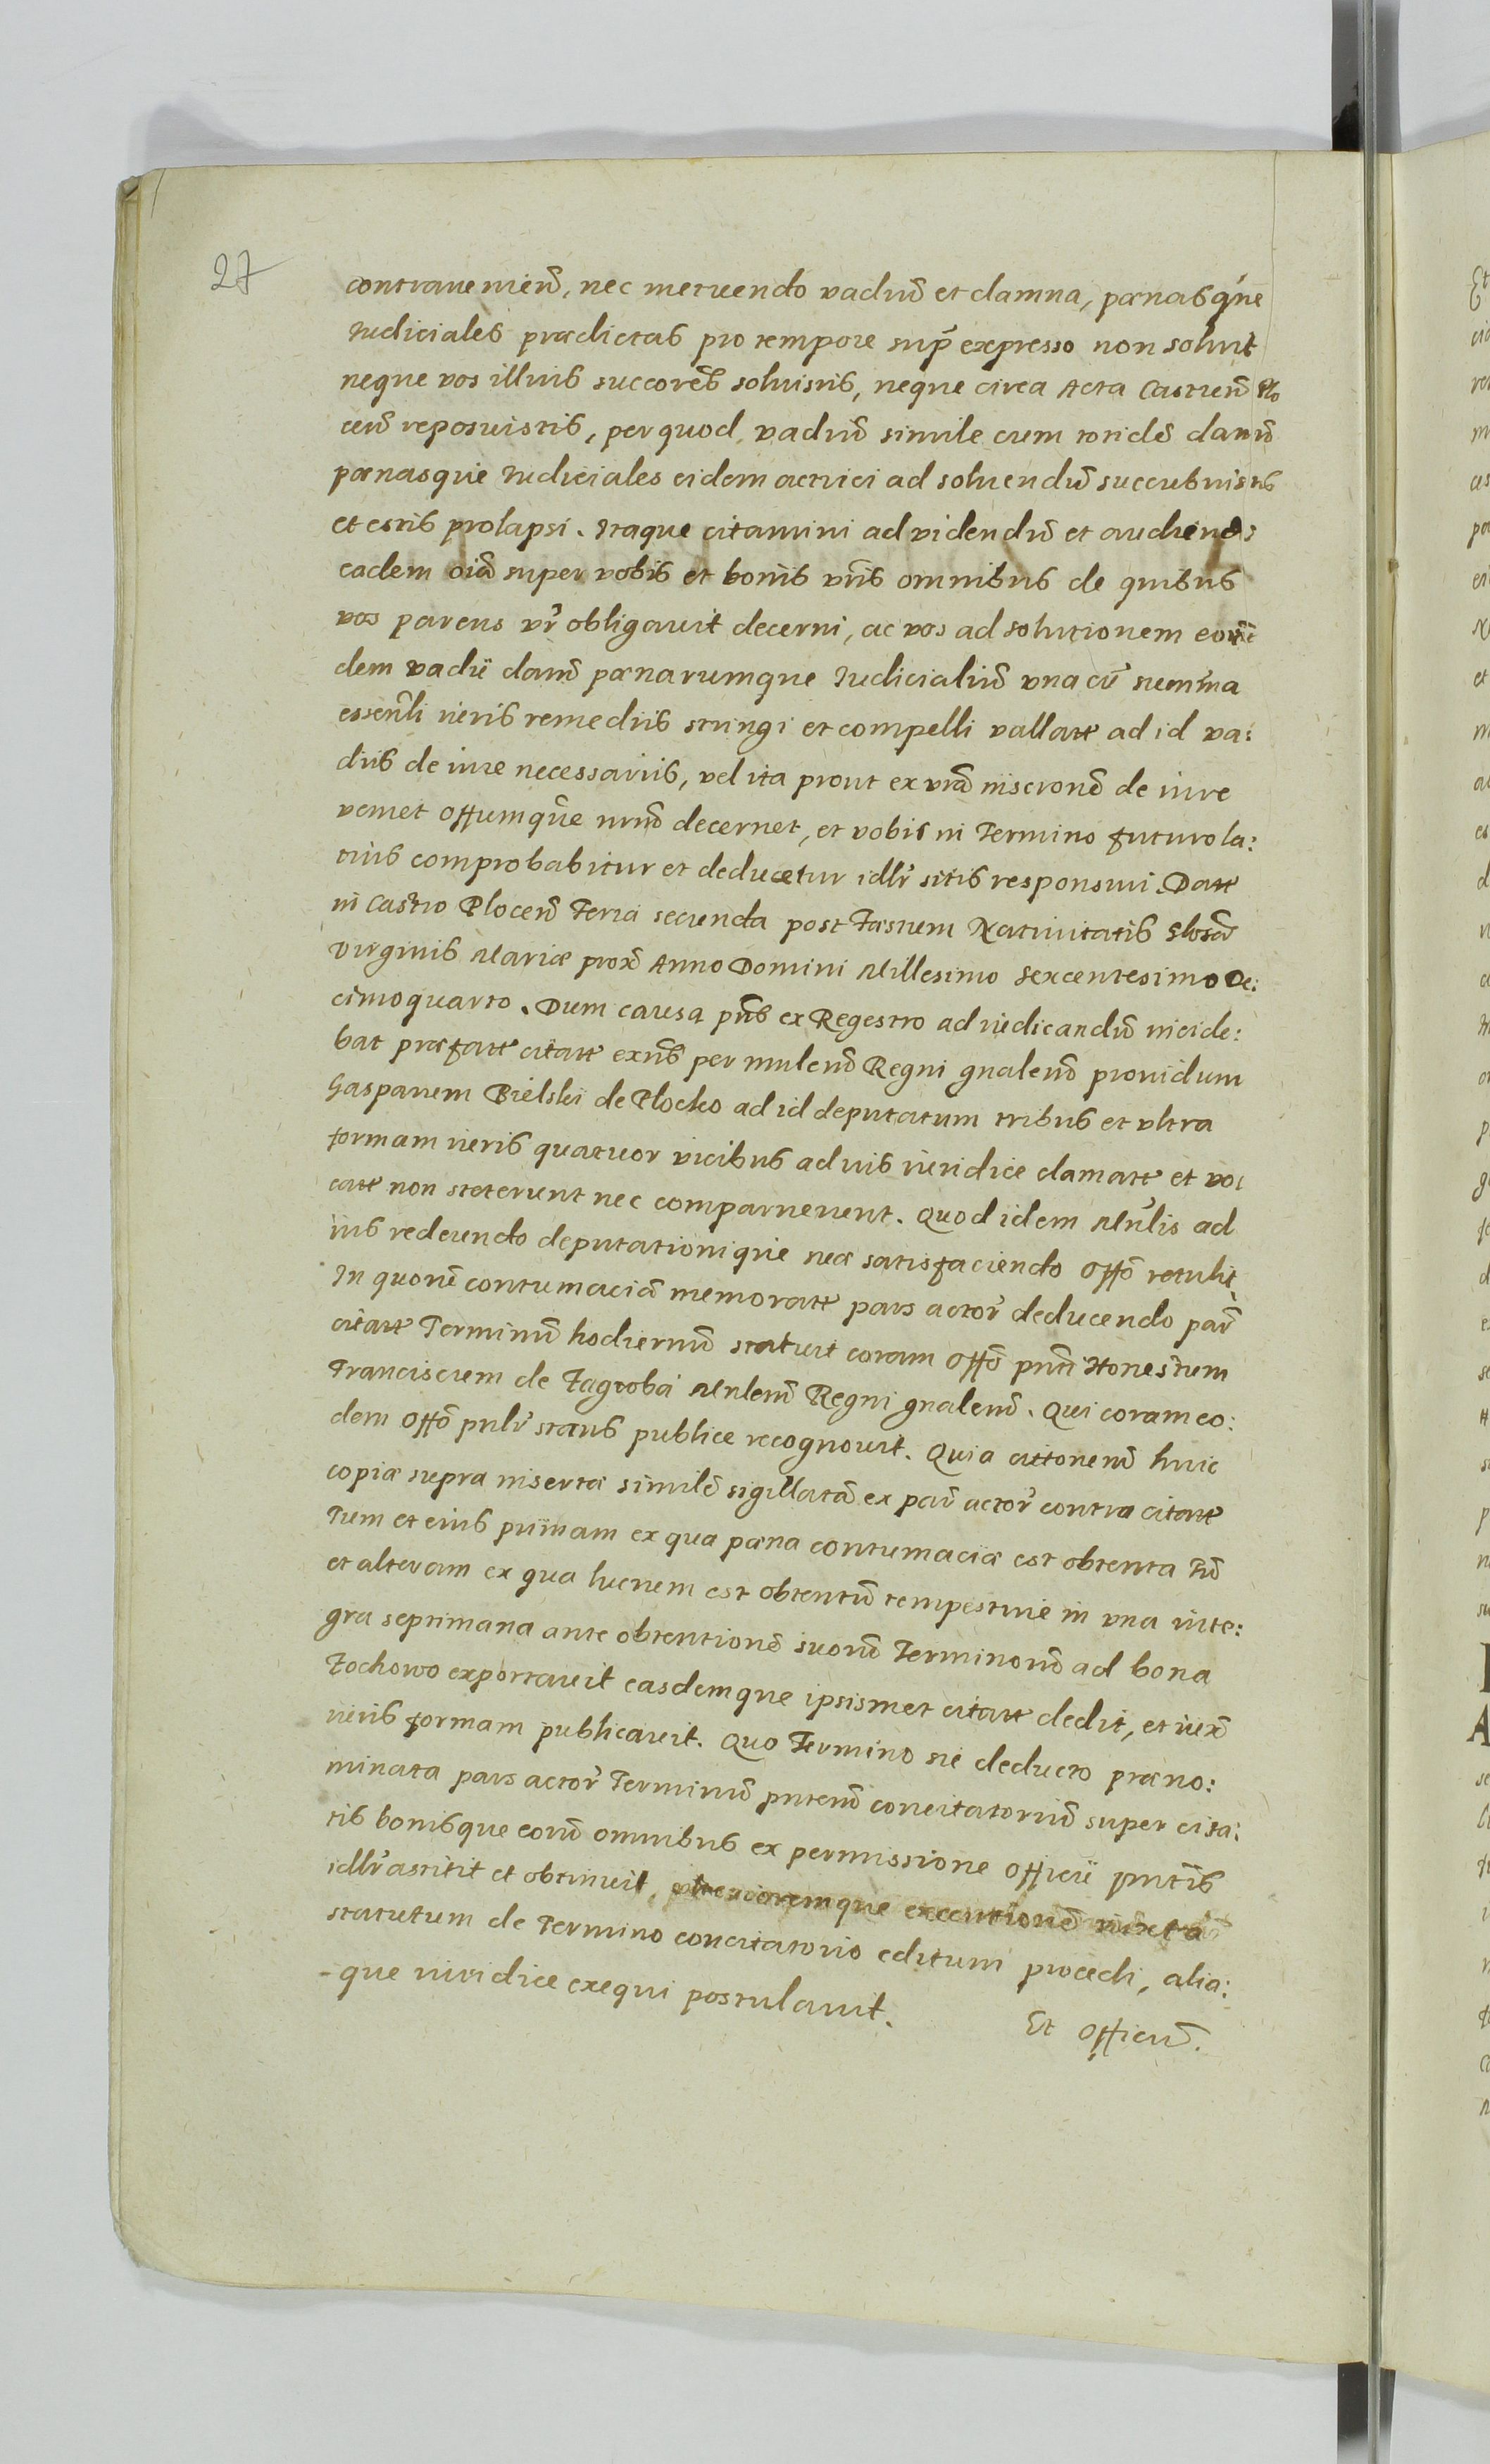 27
contraueniend, nec metuendo vadiũ et damna, pænasq́ue
Iudiciales prædictas pro tempore sup̃ expresso non soluit
neque vos illius succores̃ soluistis, neque circa Acta Castreñ Plo
ceñ reposuistis, per quod, vadiũ simile cum totidẽ damñ
pænasque Iudiciales eidem actrici ad soluendũ succubuistis
et estis prolapsi. Itaque citamini ad videndũ et audiend:
eadem oĩa super vobis et bonis vr̃is omnibus de quibus
vos parens vr̃ obligauit decerni, ac vos ad solutionem eorũ
dem vadii damñ pænarumque Iudicialiũ vna cũ sum̃ma
essen̄li iuris remediis stringi et compelli vallate ad id va:
diis de iure necessariis, vel ita prout ex vrã inscronẽ de iure
veniet Offumque nr̃m decernet, et vobis in Termino futuro la:
tius comprobabitur et deducetur idlr̃ sitis responsuri. Datt
in Castro Ploceñ Feria secunda post Festum Natiuitatis Glosæ
Virginis Mariæ prox̃ Anno Domini Millesimo Sexcentesimo De:
cimoquarto. Dum causa pñs ex Regestro ad iudicandũ incide:
bat præfatt citatt exñs per mulenĩ Regni gnalenĩ prouidum
Gasparem Bielski de Plocko ad id deputatum tribus et vltra
formam iuris quatuor vicibus ad ius iuridice clamatt et vo:
catt non steterunt nec comparuerunt. Quod idem Mñlis ad
ius redeundo deputationique suæ satisfaciendo Offõ retulit,
In quorũ contumaciã memoratt pars actor̃ deducendo par̃
citatt Terminũ hodiernũ statuit coram Offõ pñti Honestum
Franciscum de Zagroba Mnlenĩ Regni gnalenĩ. Qui coram eo:
dem Offõ pnlr̃ stans publice recognouit. Quia cittonem̃ huic
copiæ supra insertæ similẽ sigillatã ex par̃ actor̃ contra citatt
Tum et eius primam ex qua pæna contumaciæ est obtenta Tũ
et alteram ex qua lucrum est obtentũ tempestiue in vna inte:
gra septimana ante obtentionẽ suorũ Terminorũ ad bona
Zochowo exportauit easdemque ipsismet citatt dedit, et iuxã
iuris formam publicauit. Quo Termino sic deducto præno:
minata pars actor̃ Terminũ pntem̃ concitatoriũ super cita:
tis bonisque eorũ omnibus ex permissione Officii pñtis
idlr̃ astitit et obtinuit, vlterioremque executionẽ iuxta
statutum de Termino concitatorio editum procedi, alia:
-que iuridice exequi postulauit.
Et Officiũ.